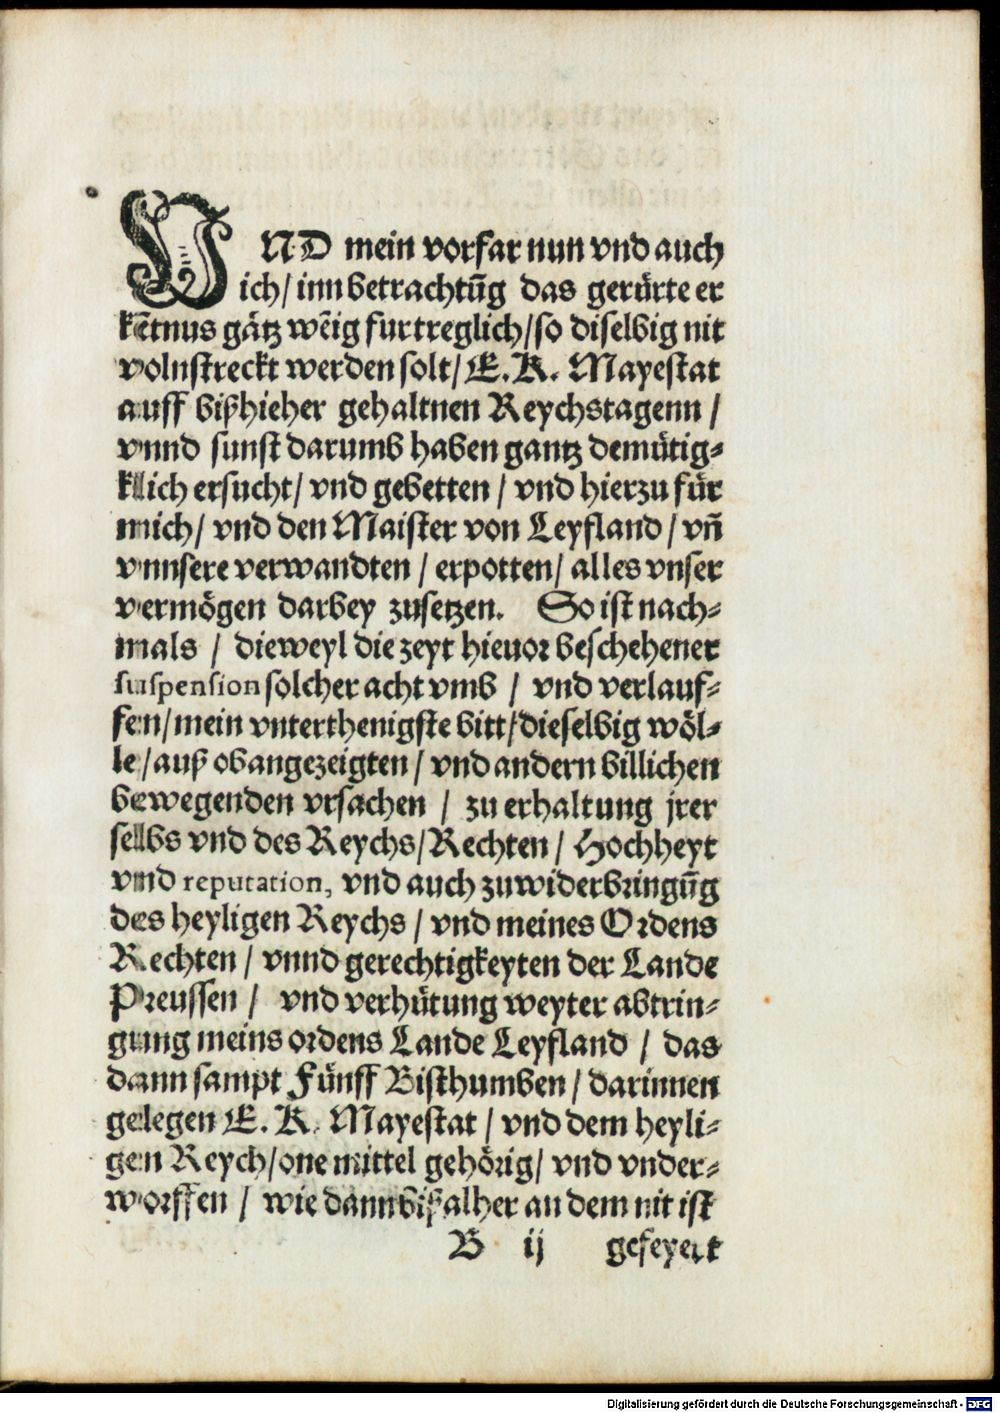 VND mein vorfar nun vnd auch
ich/ inn betrachtūg das gerürte er
kētnus gātz wēig furtreglich/ so diselbig nit
volnstreckt werden solt/ E. K. Mayestat
auff bißhieher gehaltnen Reychstagenn /
vnnd sunst darumb haben gantz demütig⸗
klich ersucht/ vnd gebetten / vnd hierzu für
mich/ vnd den Maister von Leyfland / vn̄
vnnsere verwandten / erpotten/ alles vnser
vermögen darbey zusetzen. So ist nach⸗
mals / dieweyl die zeyt hieuor beschehener
suspension solcher acht vmb / vnd verlauf⸗
fen/ mein vnterthenigste bitt/ dieselbig wöl⸗
le/ auß obangezeigten / vnd andern billichen
bewegenden vrsachen / zu erhaltung jrer
selbs vnd des Reychs/ Rechten / Hochheyt
vnd reputation, vnd auch zuwiderbringūg
des heyligen Reychs / vnd meines Ordens
Rechten / vnnd gerechtigkeyten der Lande
Preussen / vnd verhütung weyter abtrin⸗
gung meins ordens Lande Leyfland / das
dann sampt Fünff Bisthumben / darinnen
gelegen E. K. Mayestat / vnd dem heyli⸗
gen Reych/ one mittel gehörig/ vnd vnder⸗
worffen / wie dann bißalher an dem nit ist
B ij gefeyert
Digitalisierung gefördert durch die Deutsche Forschungsgemeinschaft - DFG